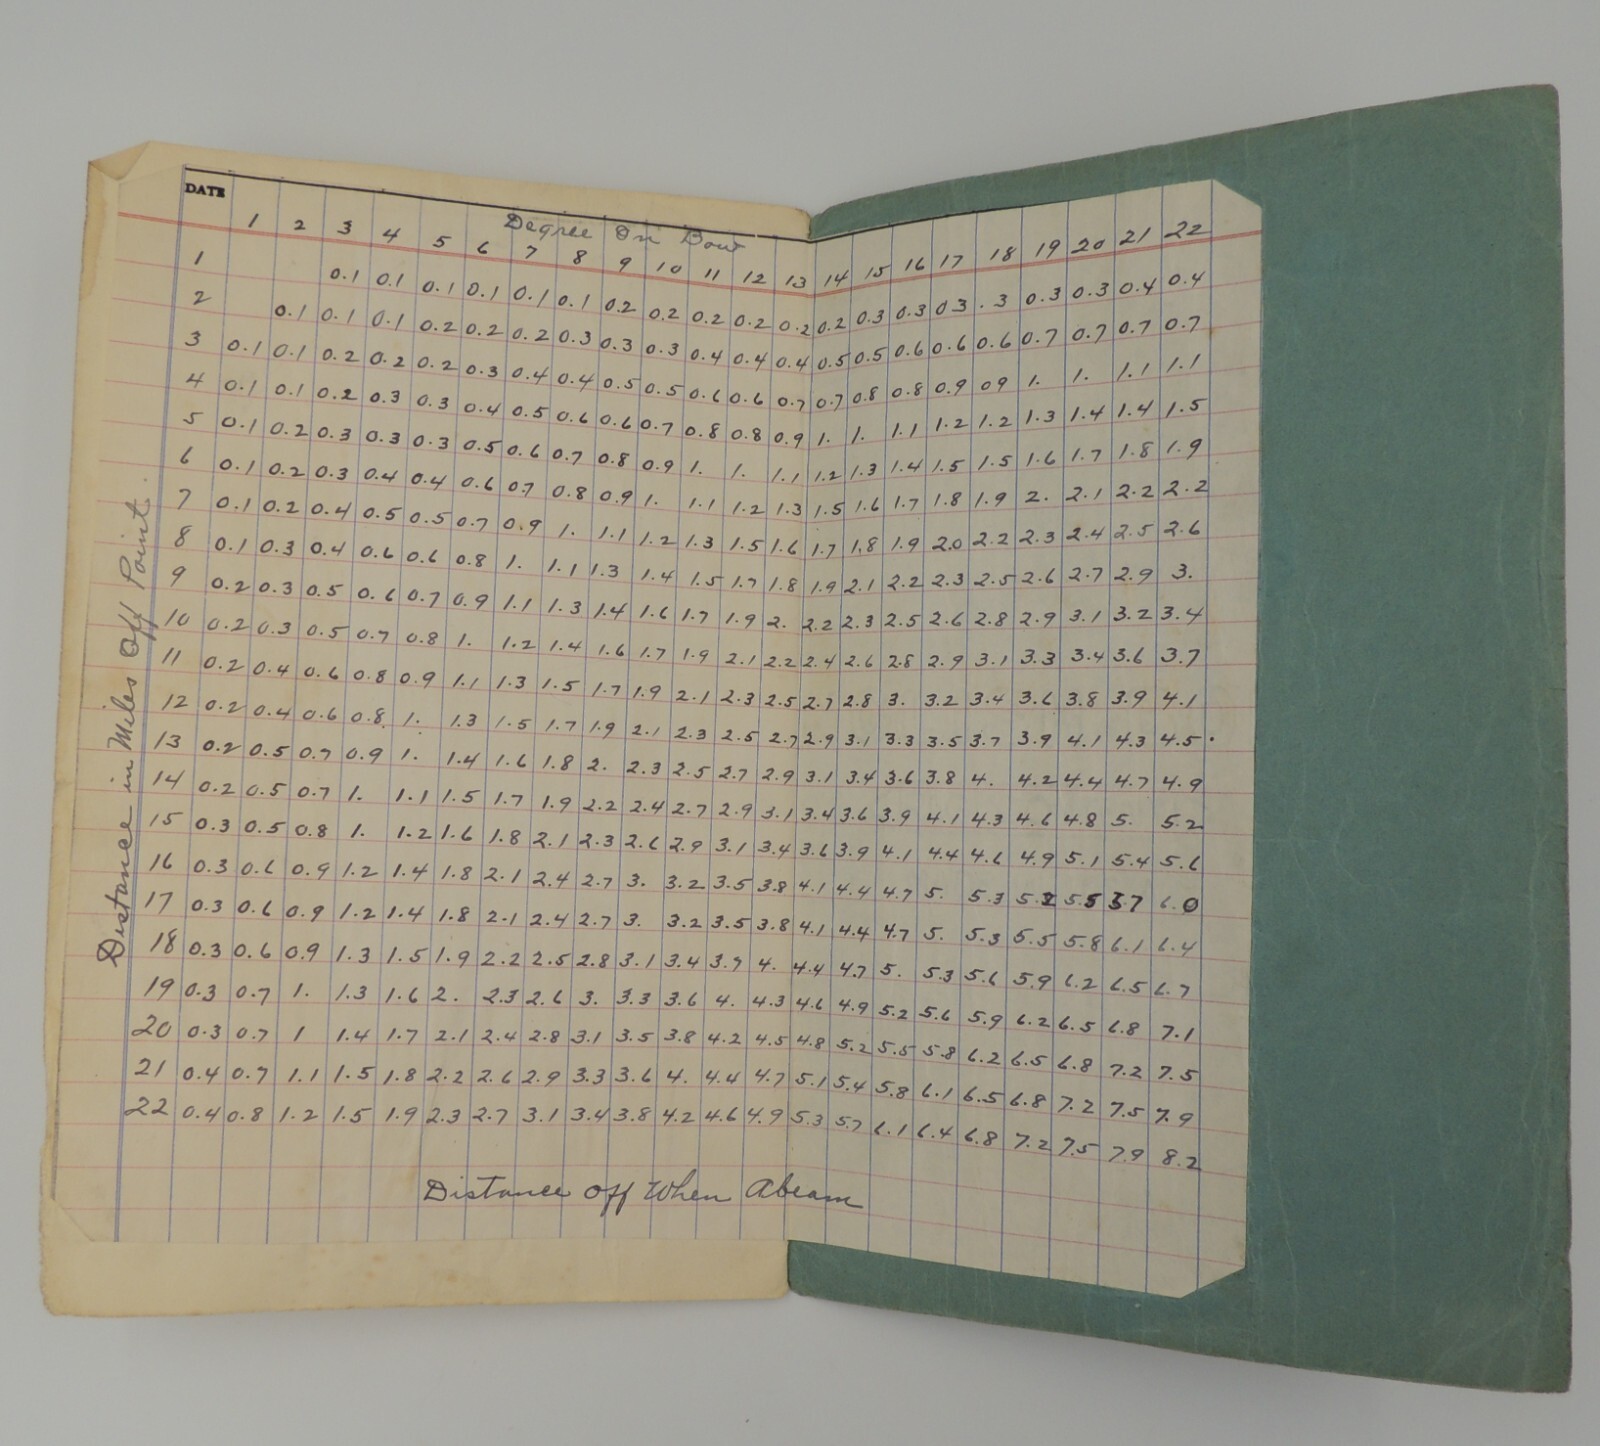 DATE
Degree On Bow
1 2 3 4 5 6 7 8 9 10 11 12 13 14 15 16 17 18 19 20 21 22
1 0.1 0.1 0.1 0.1 0.1 0.1 0.2 0.2 0.2 0.2 0.2 0.2 0.3 0.3 03 .3 0.3 0.3 0.4 0.4
2 0.1 0.1 0.1 0.2 0.2 0.2 0.3 0.3 0.3 0.4 0.4 0.4 0.5 0.5 0.6 0.6 0.6 0.7 0.7 0.7 0.7
3 0.1 0.1 0.2 0.2 0.2 0.3 0.4 0.4 0.5 0.5 0.6 0.6 0.7 0.7 0.8 0.8 0.9 09 1. 1. 1.1 1.1
4 0.1 0.1 0.2 0.3 0.3 0.4 0.5 0.6 0.6 0.7 0.8 0.8 0.9 1. 1. 1.1 1.2 1.2 1.3 1.4 1.4 1.5
5 0.1 0.2 0.3 0.3 0.3 0.5 0.6 0.7 0.8 0.9 1. 1. 1.1 1.2 1.3 1.4 1.5 1.5 1.6 1.7 1.8 1.9
6 0.1 0.2 0.3 0.4 0.4 0.6 0.7 0.8 0.9 1. 1.1 1.2 1.3 1.5 1.6 1.7 1.8 1.9 2. 2.1 2.2 2.2
7 0.1 0.2 0.4 0.5 0.5 0.7 0.9 1. 1.1 1.2 1.3 1.5 1.6 1.7 1.8 1.9 2.0 2.2 2.3 2.4 2.5 2.6
8 0.1 0.3 0.4 0.6 0.6 0.8 1. 1.1 1.3 1.4 1.5 1.7 1.8 1.9 2.1 2.2 2.3 2.5 2.6 2.7 2.9 3.
9 0.2 0.3 0.5 0.6 0.7 0.9 1.1 1.3 1.4 1.6 1.7 1.9 2. 2.2 2.3 2.5 2.6 2.8 2.9 3.1 3.2 3.4
10 0.2 0.3 0.5 0.7 0.8 1. 1.2 1.4 1.6 1.7 1.9 2.1 2.2 2.4 2.6 2.8 2.9 3.1 3.3 3.4 3.6 3.7
11 0.2 0.4 0.6 0.8 0.9 1.1 1.3 1.5 1.7 1.9 2.1 2.3 2.5 2.7 2.8 3. 3.2 3.4 3.6 3.8 3.9 4.1
12 0.2 0.4 0.6 0.8 1. 1.3 1.5 1.7 1.9 2.1 2.3 2.5 2.7 2.9 3.1 3.3 3.5 3.7 3.9 4.1 4.3 4.5
13 0.2 0.5 0.7 0.9 1. 1.4 1.6 1.8 2. 2.3 2.5 2.7 2.9 3.1 3.4 3.6 3.8 4. 4.2 4.4 4.7 4.9
14 0.2 0.5 0.7 1. 1.1 1.5 1.7 1.9 2.2 2.4 2.7 2.9 3.1 3.4 3.6 3.9 4.1 4.3 4.6 4.8 5. 5.2
15 0.3 0.5 0.8 1. 1.2 1.6 1.8 2.1 2.3 2.6 2.9 3.1 3.4 3.6 3.9 4.1 4.4 4.6 4.9 5.1 5.4 5.6
16 0.3 0.6 0.9 1.2 1.4 1.8 2.1 2.4 2.7 3. 3.2 3.5 3.8 4.1 4.4 4.7 5. 5.3 5.2 5.5 5.7 6.0
17 0.3 0.6 0.9 1.2 1.4 1.8 2.1 2.4 2.7 3. 3.2 3.5 3.8 4.1 4.4 4.7 5. 5.3 5.5 5.8 6.1 6.4
18 0.3 0.6 0.9 1.3 1.5 1.9 2.2 2.5 2.8 3.1 3.4 3.7 4. 4.4 4.7 5. 5.3 5.6 5.9 6.2 6.5 6.7
19 0.3 0.7 1. 1.3 1.6 2. 2.3 2.6 3. 3.3 3.6 4. 4.3 4.6 4.9 5.2 5.6 5.9 6.2 6.5 6.8 7.1
20 0.3 0.7 1 1.4 1.7 2.1 2.4 2.8 3.1 3.5 3.8 4.2 4.5 4.8 5.2 5.5 5.8 6.2 6.5 6.8 7.2 7.5
21 0.4 0.7 1.1 1.5 1.8 2.2 2.6 2.9 3.3 3.6 4. 4.4 4.7 5.1 5.4 5.8 6.1 6.5 6.8 7.2 7.5 7.9
22 0.4 0.8 1.2 1.5 1.9 2.3 2.7 3.1 3.4 3.8 4.2 4.6 4.9 5.3 5.7 6.1 6.4 6.8 7.2 7.5 7.9 8.2
Distance in Miles Off Point.
Distance off When Abeam